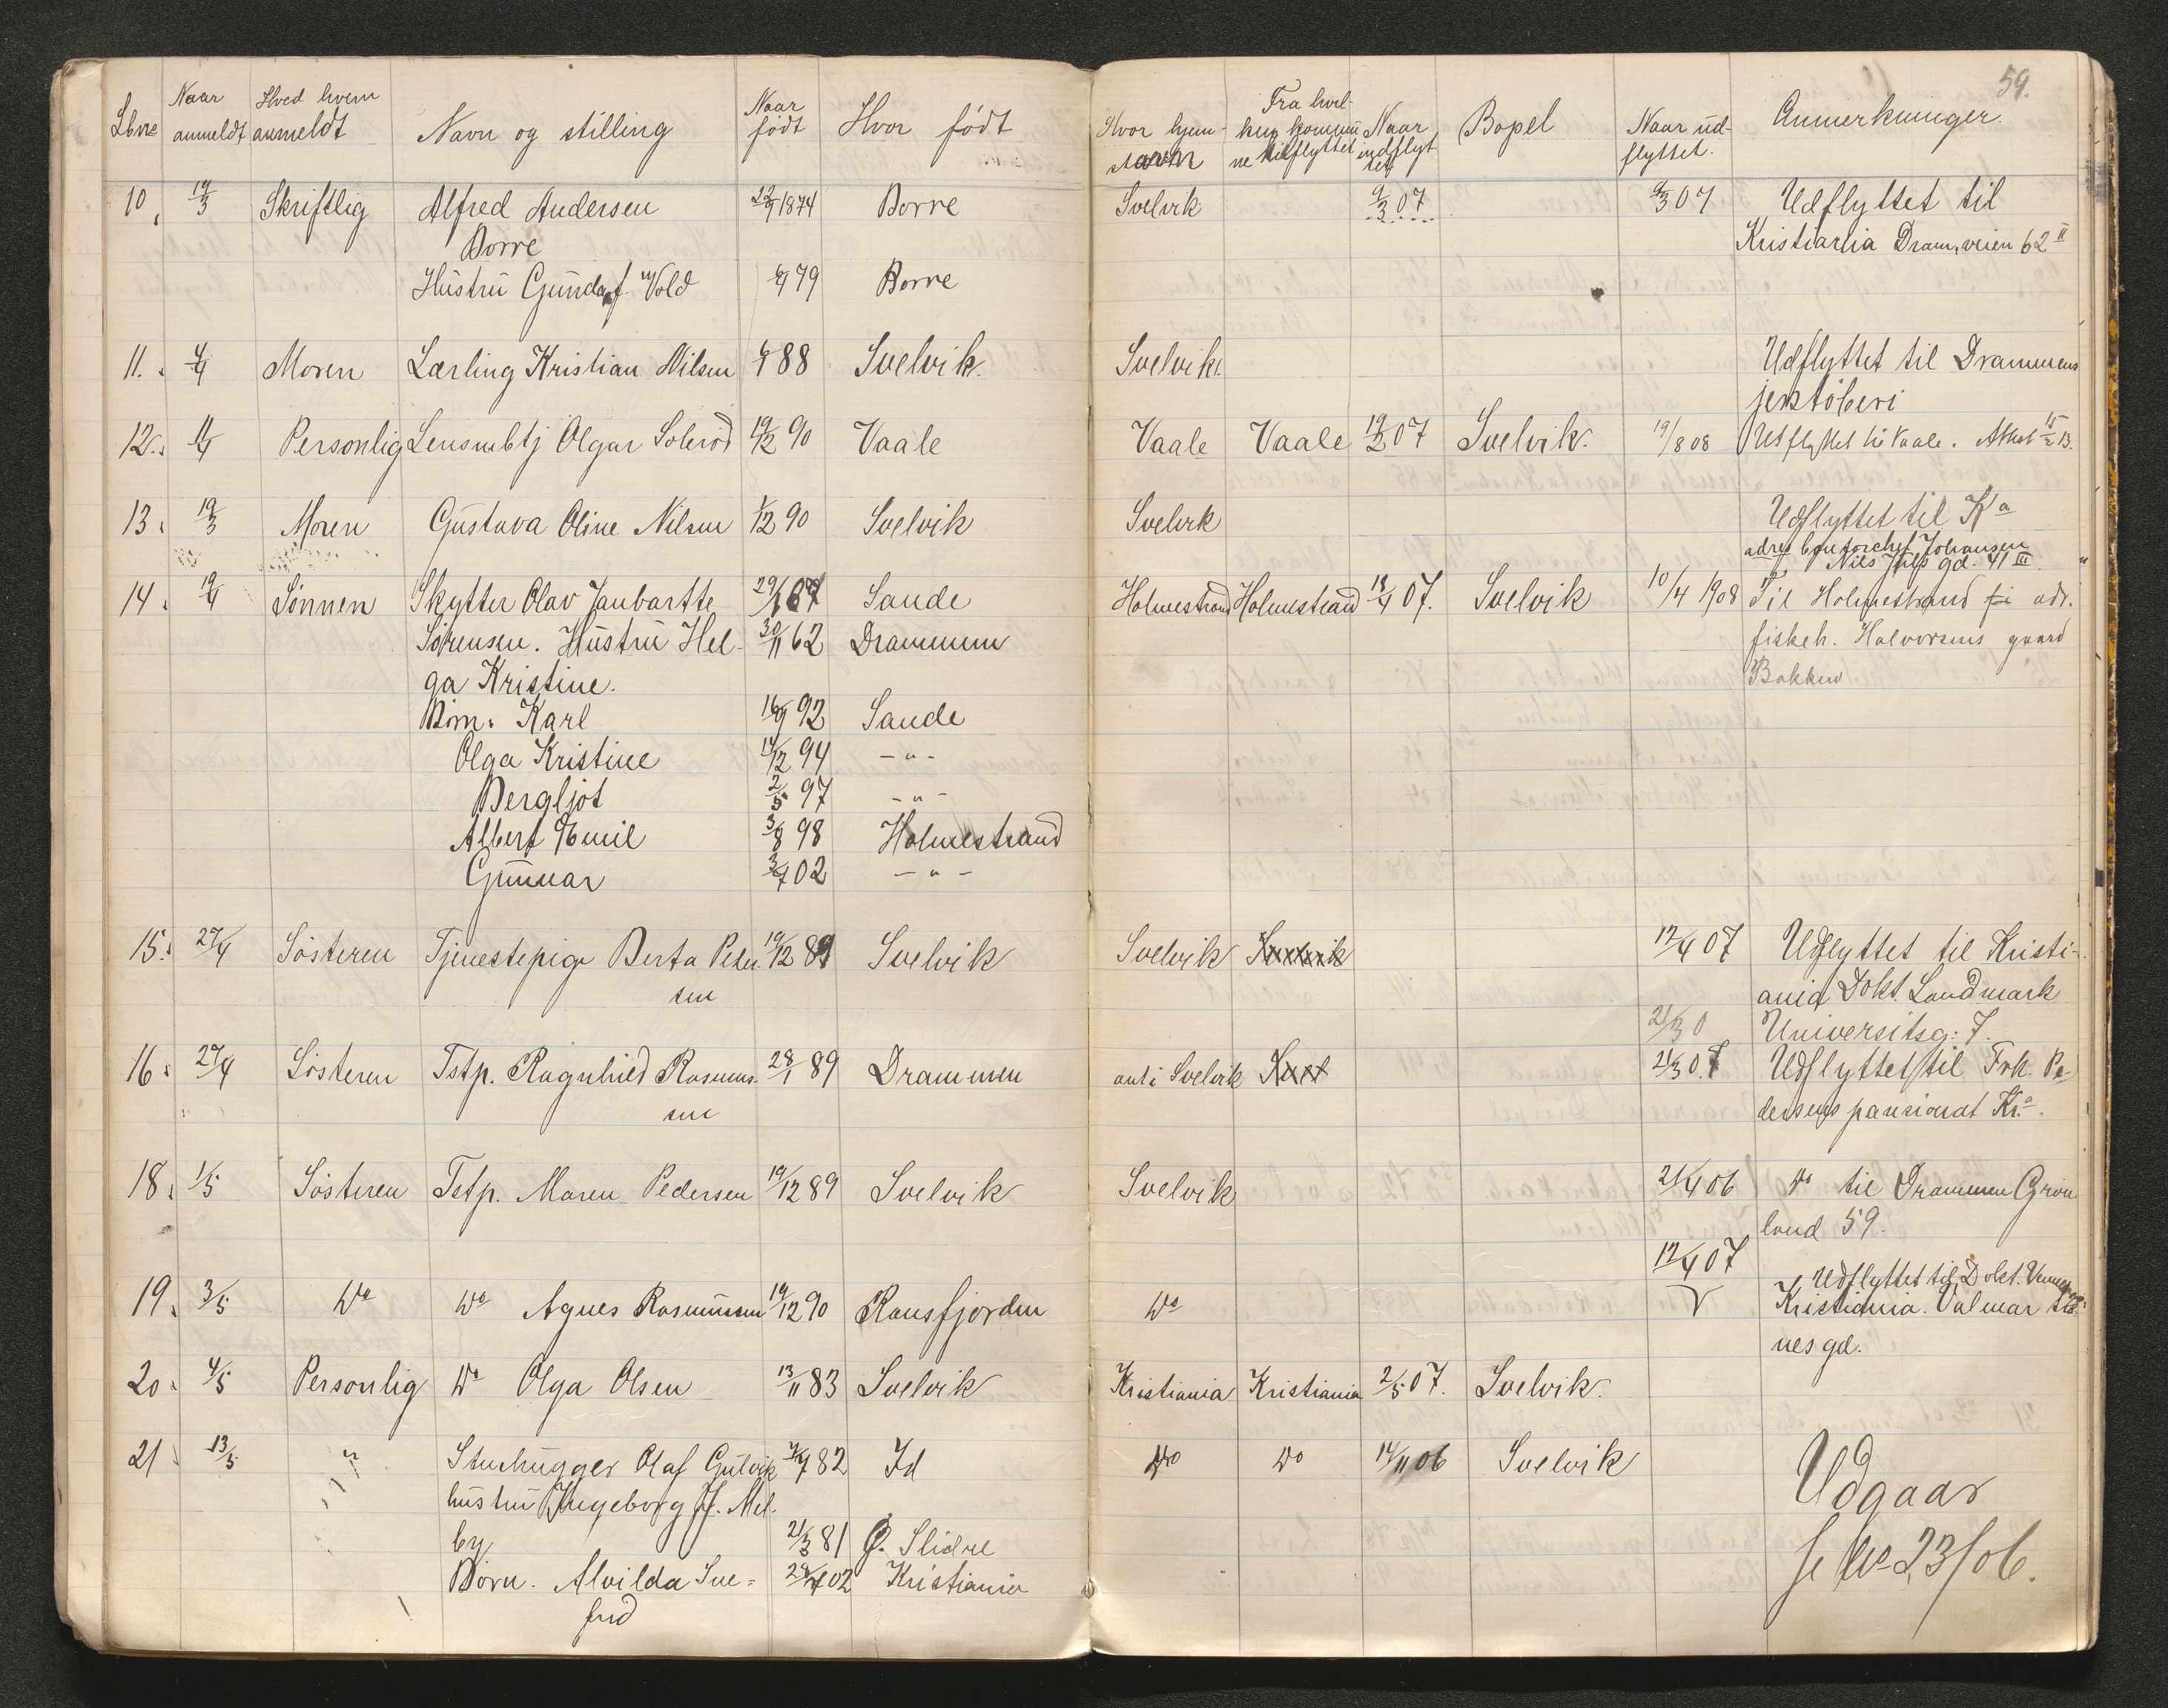 59.
Lbnr Naar anmeldt Hved hvem anmeldt Navn og stilling Naar født Hvor født Hvor hjem- stavn Fra hvil- ken kommu ne tilflyttet Naar indflyt tet Bopel Naar ud- flyttet. Anmerkninger.
10. 19/3 Skriftlig Alfred Andersen 22/7 1874 Borre Svelvik 9/3 07 9/3 07 Udflyttet til
Borre Kristiania Dram.veien 62 II
Hustru Gunda f. Vold 79 Borre
11. 4/4 Moren Lærling Kristian Nilsen 88 Svelvik. Svelvik. Udflyttet til Drammens
jernstøberi
12. 11/4 Personlig Lensmbtj Olgar Solerød 19/12 90 Vaale Vaale Vaale 19/2 07 Svelvik. 19/8 08 Utflyttet til Vaale. Attest 15/2 13.
13. 19/3 Moren Gustava Oline Nilsen 1/12 90 Svelvik Svelvik Udflyttet til Ka
adres Johansen
Nils Juls gd. 41 III
14. 19/4 Sønnen Skytter Olav Janbartte 29/1 67 Sande Holmestrand Holmestrand 18/4 07. Svelvik 10/4 1908 Til Holmestrand adr.
Sørensen. Hustru Hel- 30/11 62 Drammen fiskeh. Halvorsens gaard
ga Kristine. Bakken
Børn: Karl 16/9 92 Sande
Olga Kristine 14/12 94 - " -
Bergljot 2/5 97 - " -
Albert Emil 3/8 98 Holmestrand
Gunnar 3/7 02 - " -
15. 27/4 Søsteren Tjenestepige Berta Peder- 19/12 89 Svelvik Svelvik Svelvik 12/4 07 Udflyttet til Kristi-
sen ania Dokt. Landmark
21/3 0 Universitsg: 7.
16. 27/4 Søsteren Tstp. Ragnhild Rasmus- 28/1 89 Drammen ant: Svelvik Svel 21/3 07 Udflyttet til Frk. Pe-
sen dersens pansionat Kr.a.
18. 1/5 Søsteren Tstp. Maren Pedersen 19/12 89 Svelvik Svelvik 21/4 06 Do til Drammen Grøn
land 59.
12/4 07 Udflyttet til Dokt.
19. 3/5 Do Do Agnes Rasmussen 19/12 90 Ransfjorden Do Kristiania. Valmar
nes gd.
20. 4/5 Personlig Do Olga Olsen 13/11 83 Svelvik Kristiania Kristiania 2/5 07. Svelvik.
21 13/5 " Stenhugger Olaf Gulvik 82 Id Do Do 14/11 06 Svelvik Udgaar
hustru Ingeborg J. Mel-
by 21/3 81 Ø. Slidre se No 23/06.
Børn. Alvilda Sve- 02 Kristiania
frid